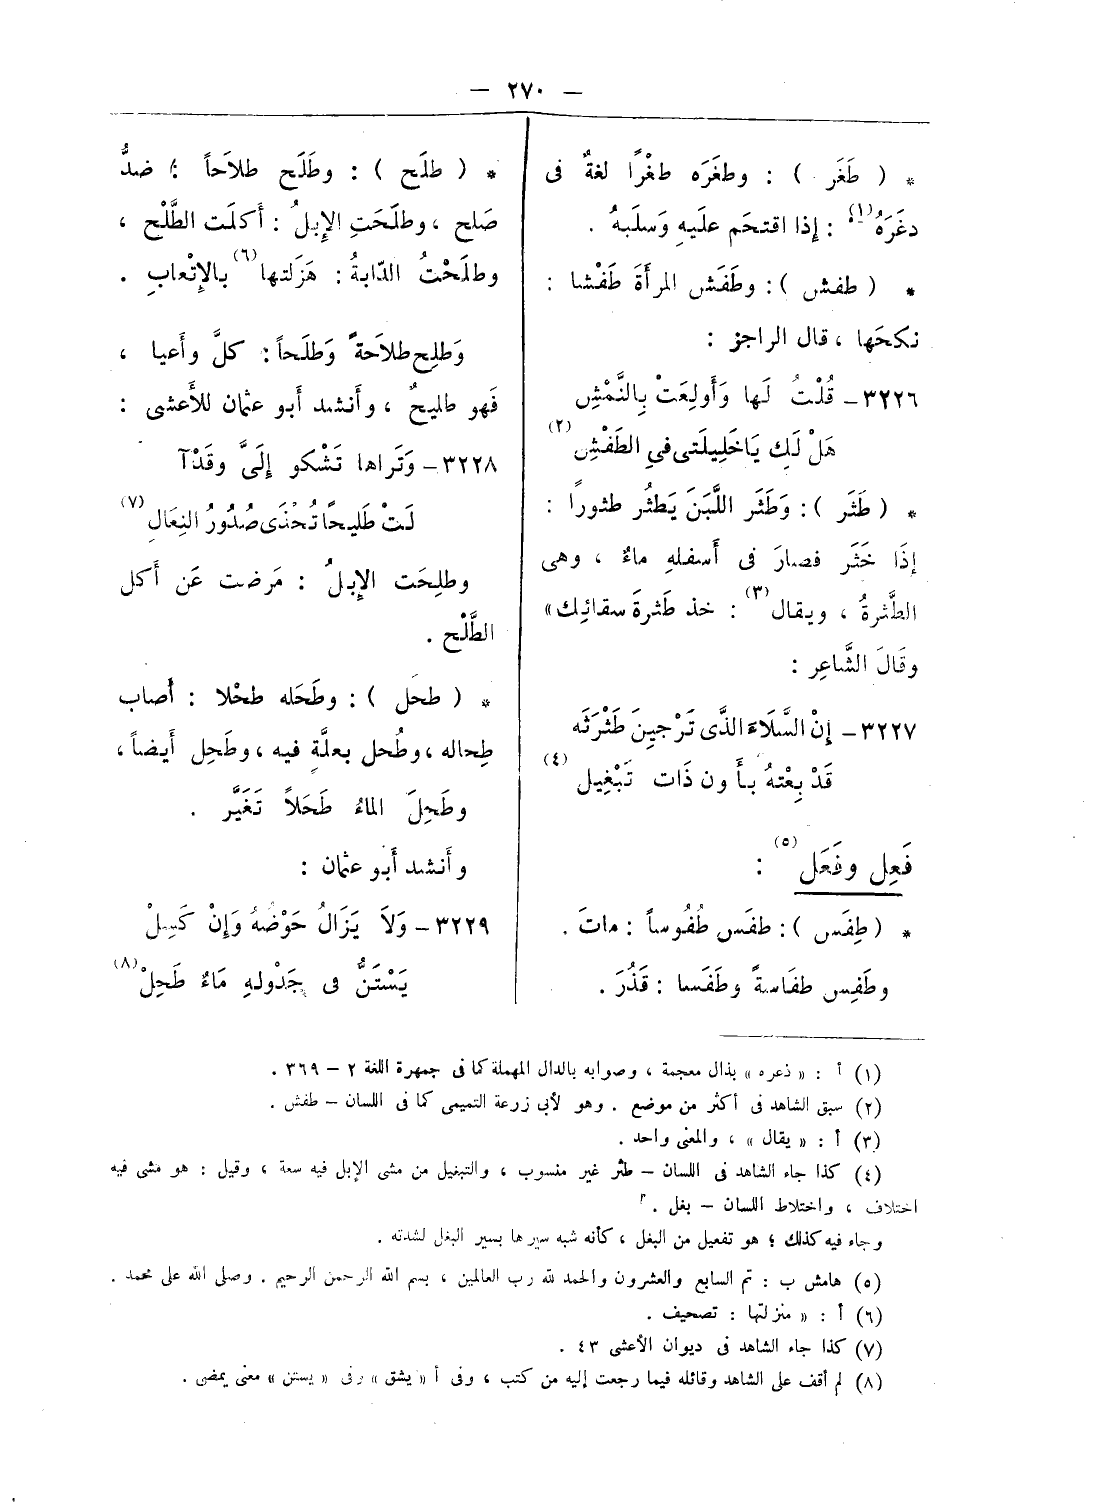 — ٢٧٠ —
* ( طَغَر ) : وطغَرَه طغْرًا لغةٌ فى
دغَرَهُ(١) : إذا اقتحَم علَيهِ وَسلَبهُ .
* ( طفش ) : وطَفَش المرأَةَ طَفْشا :
نكحَها ، قال الراجز :
٣٢٢٦ – قُلْتُ لَها وَأُولِعَتْ بِالنَّمْشِ
هَلْ لَكِ يَاخَلِيلَتى فىِ الطَفْشِ (٢)
* ( طَثَر ) : وَطَثَر اللَّبَنَ يَطثُر طثورًا :
إذَا خَثَر فصارَ فى أَسفلهِ ماءٌ ، وهى
الطَّثرةُ ، ويقال (٣) : خذ طَثرةَ سقائِك»
وقَالَ الشَّاعِر :
٣٢٢٧ – إِنْ السَّلَاءَ الذَّى تَرْجِينَ طَثْرَتَه
قَدْ بِعْتهُ بأَون ذَات تَبْغِيل (٤)
فَعِل وفَعَل (٥) :
* ( طِفَس ) : طفَس طُفُوساً : ماتَ .
وطَفِس طفَاسةً وطَفَسا : قَذُرَ .
* ( طلَح ) : وطَلَح طلاَحاً ؛ ضدُّ
صَلح ، وطلَحَتِ الإِبلُ : أَكلَت الطَّلْح ،
وطلَحْتُ الدّابةُ : هَزَلتها (٦) بالإِتْعابِ .
وَطلِح طلاَحةً وَطلَحاً : كلَّ وأَعيا ،
فَهو طليحٌ ، وأَنشد أَبو عثمان للأَعشى :
٣٢٢٨ – وَتَراها تَشْكو إِلَىَّ وقَدْآ
لَتْ طَلِيحًا تُحْذَى صُدُورُ النِعَالِ (٧)
وطلِحَت الإِبلُ : مَرضت عَن أَكل
الطَّلْح .
* ( طحل ) : وطَحَله طحْلا : أَصاب
طِحاله ، وطُحل بعلَّةٍ فيه ، وطَحِل أَيضاً ،
وطَحِلَ الماءُ طَحَلاً تَغَيَّر .
وأَنشد أَبو عثمان :
٣٢٢٩ – وَلاَ يَزَالُ حَوْضهُ وَإِنْ كَسِلْ
يَسْتَنُّ فى جَدْولهِ مَاءٌ طَحِلْ (٨)
(١) أ : « ذعره » بذال معجمة ، وصوابه بالدال المهملة كما فى جمهرة اللغة ٢ – ٣٦٩ .
(٢) سبق الشاهد فى أكثر من موضع . وهو لأبى زرعة التميمى كما فى اللسان – طفش .
(٣) أ : « يقال » ، والمعنى واحد .
(٤) كذا جاء الشاهد فى اللسان – طثر غير منسوب ، والتبغيل من مشى الإبل فيه سعة ، وقيل : هو مشى فيه
اختلاف ، واختلاط اللسان – بغل .
وجاء فيه كذلك ؛ هو تفعيل من البغل ، كأنه شبه سيرها بسير البغل لشدته .
(٥) هامش ب : تم السابع والعشرون والحمد لله رب العالمين ، بسم الله الرحمن الرحيم . وصلى الله على محمد .
(٦) أ : « منزلتها : تصحيف .
(٧) كذا جاء الشاهد فى ديوان الأعشى ٤٣ .
(٨) لم أقف على الشاهد وقائله فيما رجعت إليه من كتب ، وفى أ « يشق » وفى « يستن » معنى يمضى .